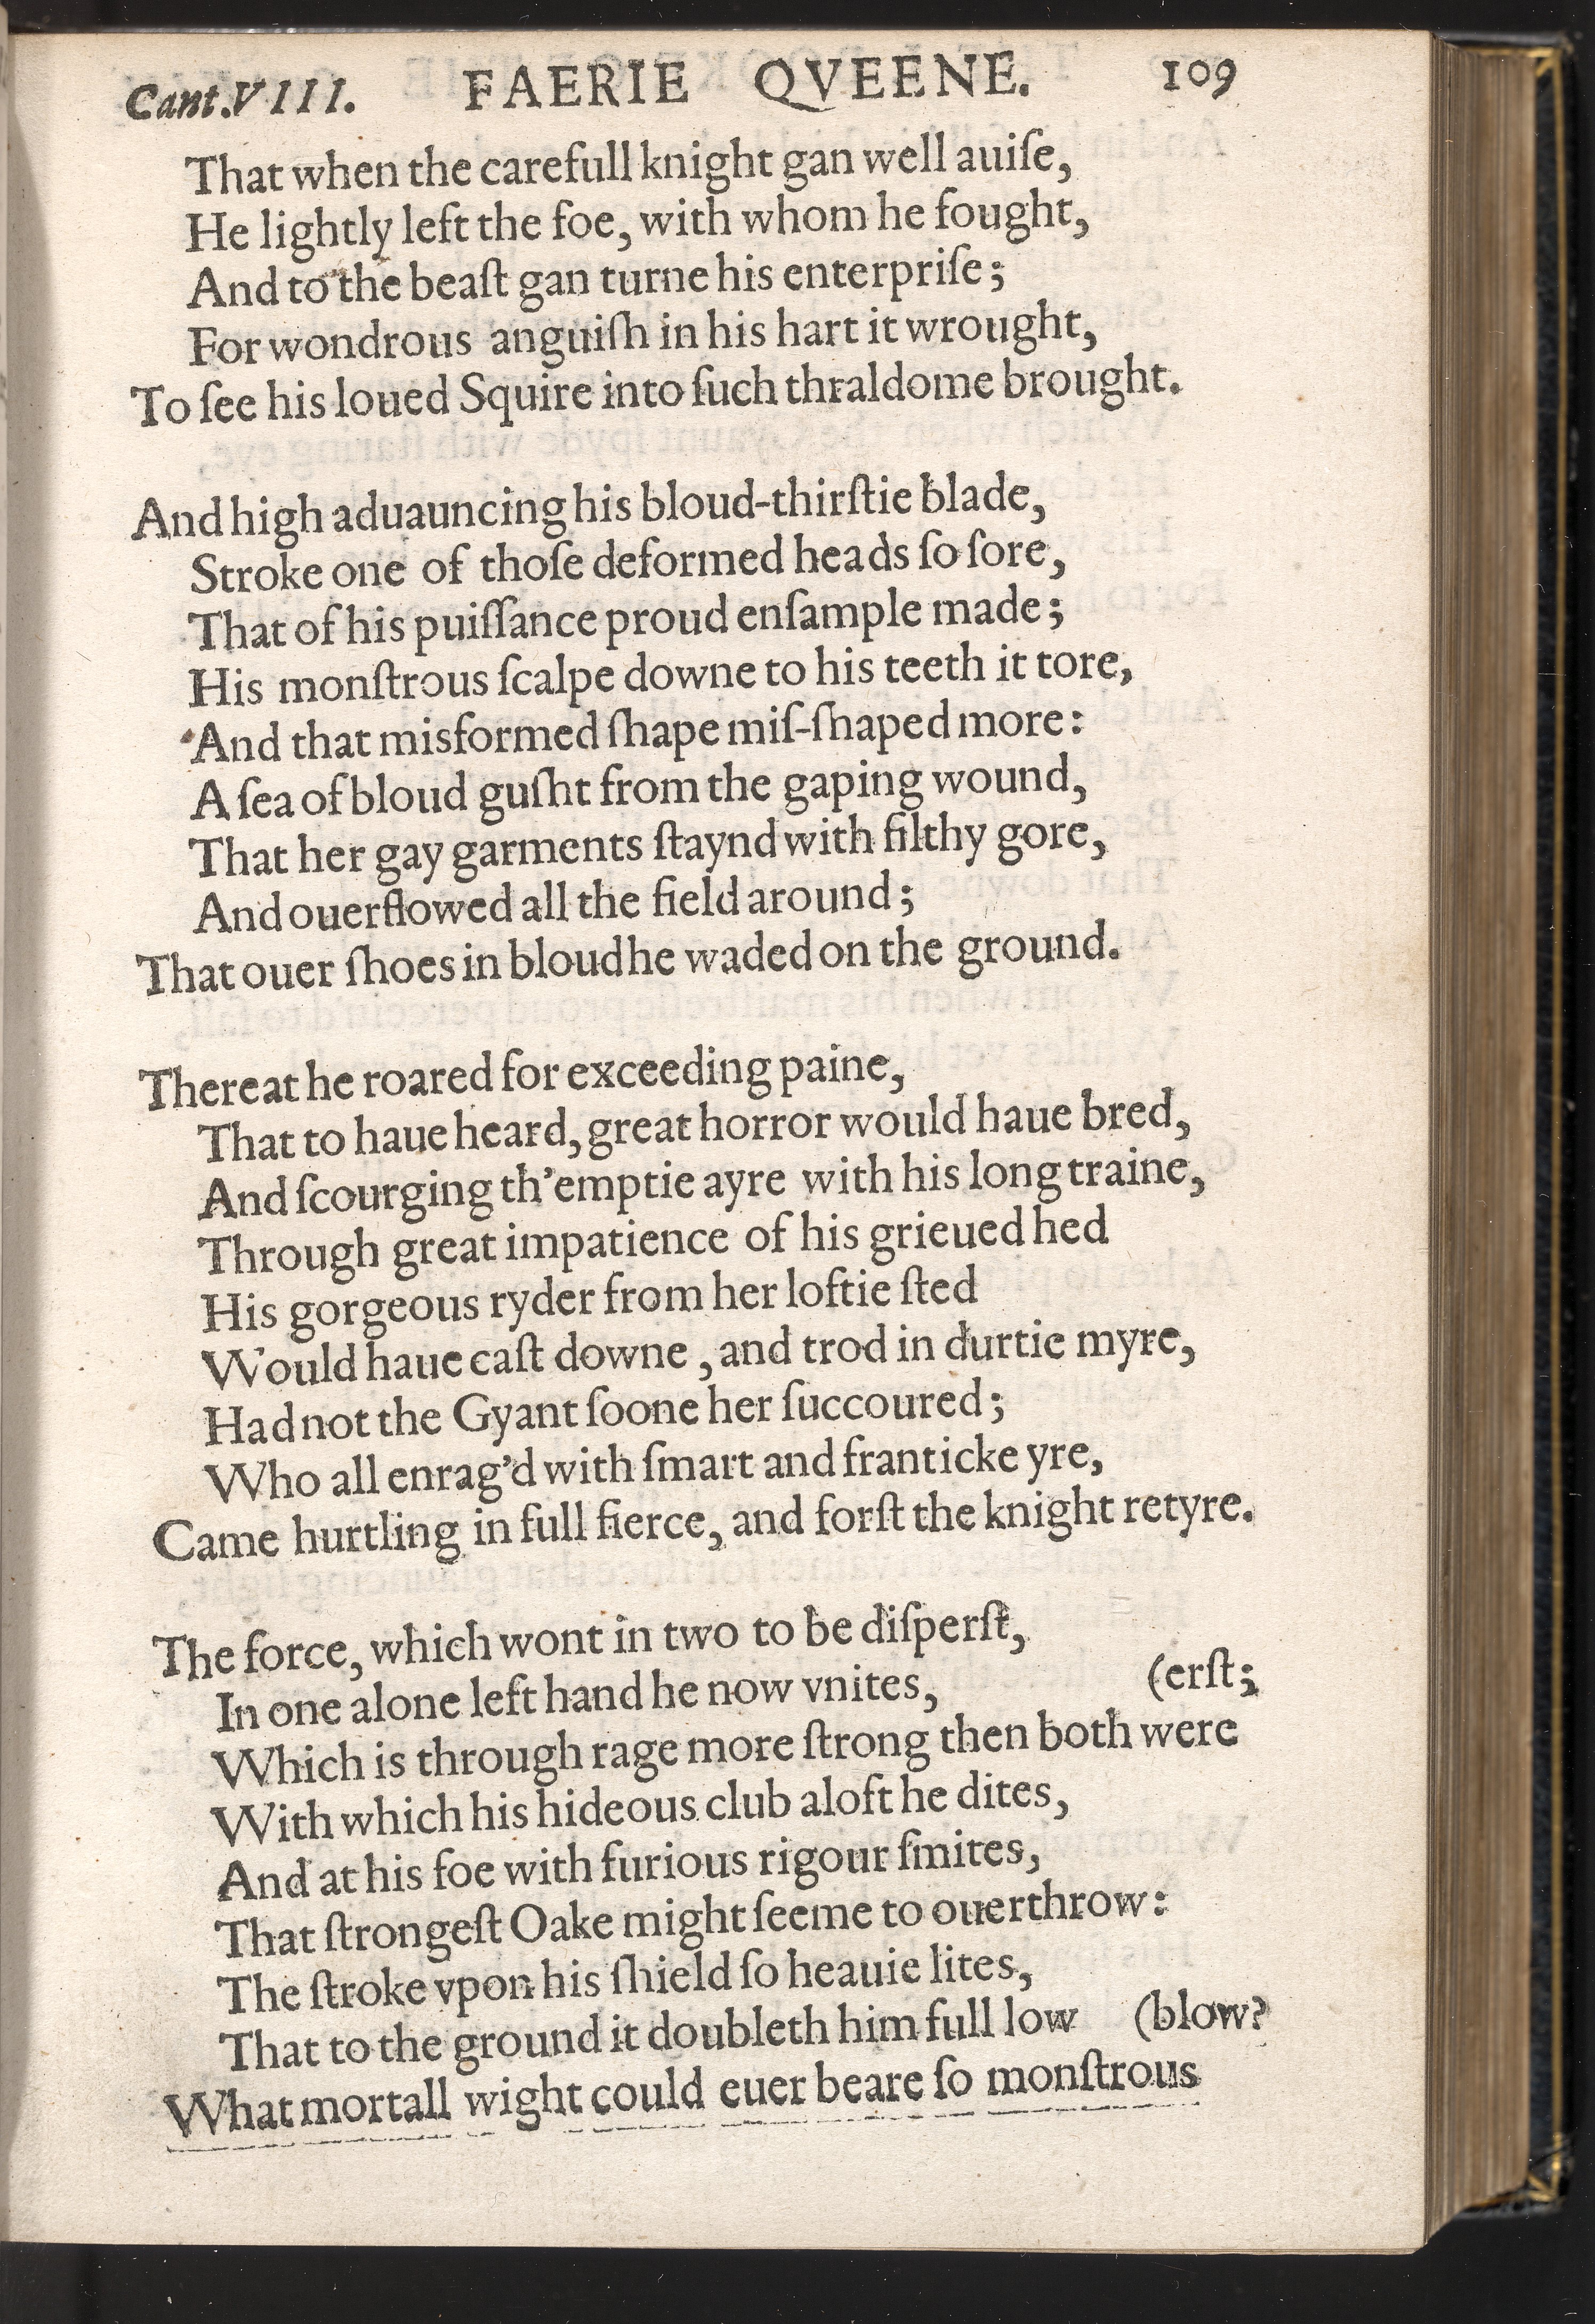 Cant.VIII. FAERIE QVEENE. 109
That when the carefull knight gan well auiſe,
He lightly left the foe, with whom he fought,
And to the beaſt gan turne his enterpriſe;
For wondrous anguiſh in his hart it wrought,
To ſee his loued Squire into ſuch thraldome brought.
And high aduauncing his bloud-thirſtie blade,
Stroke one of thoſe deformed heads ſo ſore,
That of his puiſſance proud enſample made;
His monſtrous ſcalpe downe to his teeth it tore,
And that misformed ſhape miſ-ſhaped more:
A ſea of bloud guſht from the gaping wound,
That her gay garments ſtaynd with filthy gore,
And ouerflowed all the field around;
That ouer ſhoes in bloud he waded on the ground.
Thereat he roared for exceeding paine,
That to haue heard, great horror would haue bred,
And ſcourging th'emptie ayre with his long traine,
Through great impatience of his grieued hed
His gorgeous ryder from her loftie ſted
Would haue caſt downe, and trod in durtie myre,
Had not the Gyant ſoone her ſuccoured;
Who all enrag'd with ſmart and franticke yre,
Came hurtling in full fierce, and forſt the knight retyre.
The force, which wont in two to be diſperſt,
In one alone left hand he now vnites, (erſt;
Which is through rage more ſtrong then both were
With which his hideous club aloft he dites,
And at his foe with furious rigour ſmites,
That ſtrongeſt Oake might ſeeme to ouerthrow:
The ſtroke vpon his ſhield ſo heauie lites,
That to the ground it doubleth him full low (blow?
What mortall wight could euer beare ſo monſtrous